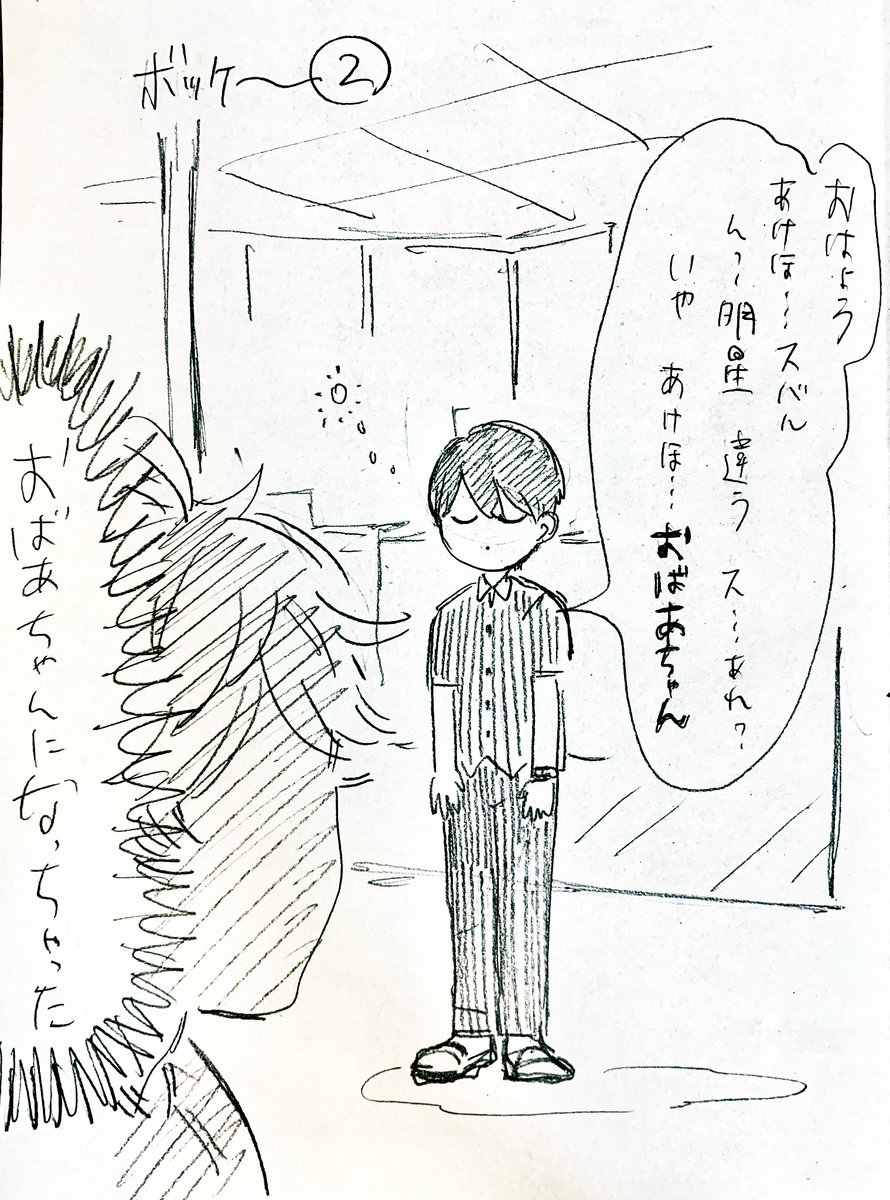 ボッケ〜②
おはよう
あけほ〜〜スバル
ん?〜明星 違う ス〜〜あれ?
いや あけほ〜〜おばあちゃん
おばあちゃんになっちゃった